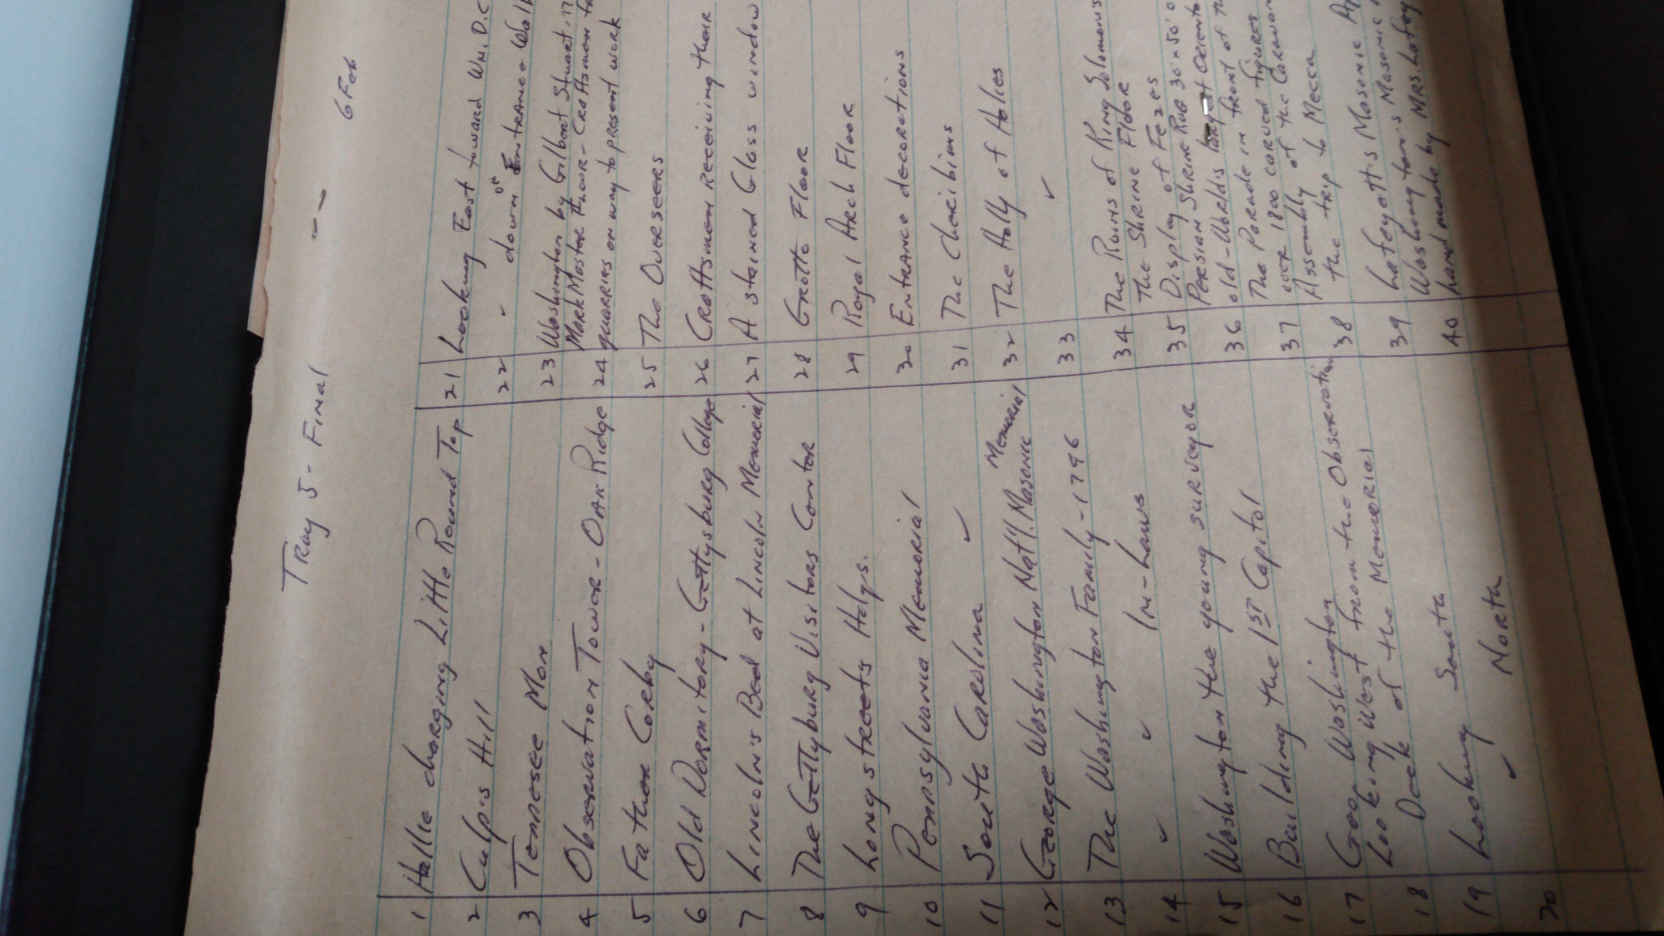 Tray 5 - Final
6 Feb
1 Hallie charging Little Round Top
2 Culp's Hill
3 Tennesee Mon
4 Observation Tower - Oak Ridge
5 Father Corby
6 Old Dormitory - Gettysburg College
7 Lincoln's Bed at Lincoln Memorial
8 The Gettyburg Visitors Center
9 Longstreets Hdqs.
10 Pennsylvania Memorial
11 South Carolina ✓
12 George Washington Nat'l. Masonic Memorial
13 The Washington Family - 1796
14 ✓ ✓ In-Laws
15 Washington the young surveyor
16 Building the 1ST Capitol
17 Geo Washington
18 Looking West from the Observation
Deck of the Memorial
19 Looking South
20 ✓ North
21 Looking East toward WH. D.C
22 - down on Entrance Walk
23 Washington by Gilbert Stuart
24 Mark Master Fellow-Craftsmen
quarries on way to present work
25 The Overseers
26 Craftsmen receiving their
27 A stained Glass window
28 Grotto Floor
29 Royal Arch Floor
30 Entrance decorations
31 The Cheribims
32 The Holly of Holies
33 ✓
34 The Ruins of King Solomons
The Shrine Floor
35 Display of Fezes
Persian Shrine Rug 30 x 50'
36 old - Worlds
The Parade in front of
37 over 1800 carved figures
Assembly of the Caravan
38 the trip to Mecca
39 Lafeyett's Masonic Ap
Washington's Masonic
40 hand made by Mrs Lafey